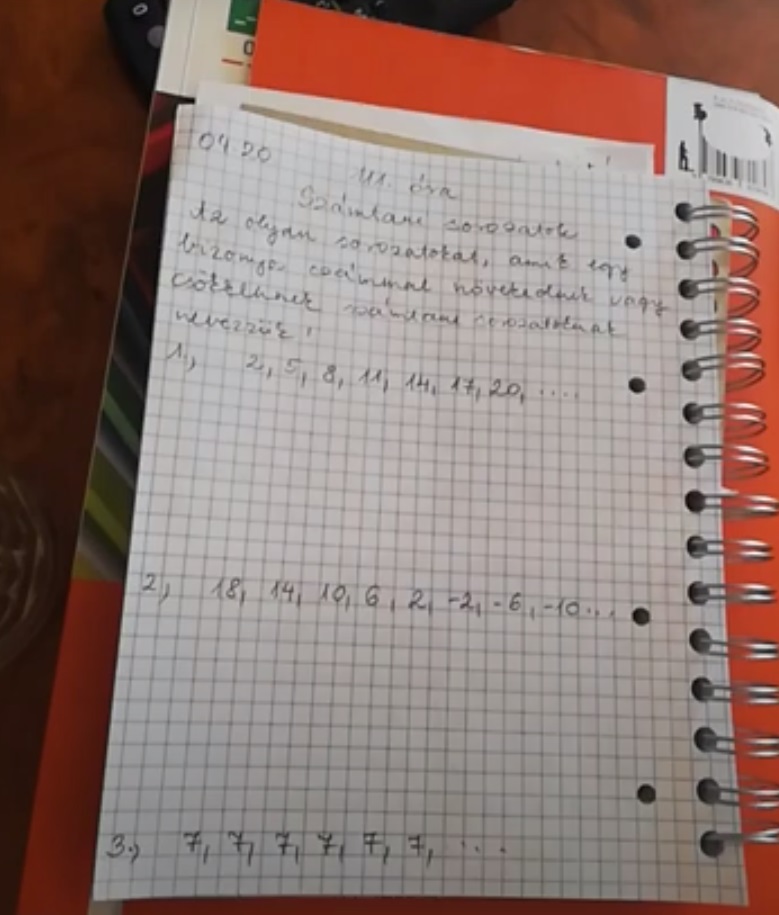 04.20
111. óra
Számtani sorozatok
Az olyan sorozatokat, amik egy
bizonyos számmal növekednek vagy
csökkennek számtani sorozatoknak
nevezzük!
1., 2, 5, 8, 11, 14, 17, 20, ....
2, 18, 14, 10, 6, 2, -2, -6, -10...
3., 7, 7, 7, 7, 7, 7, ...